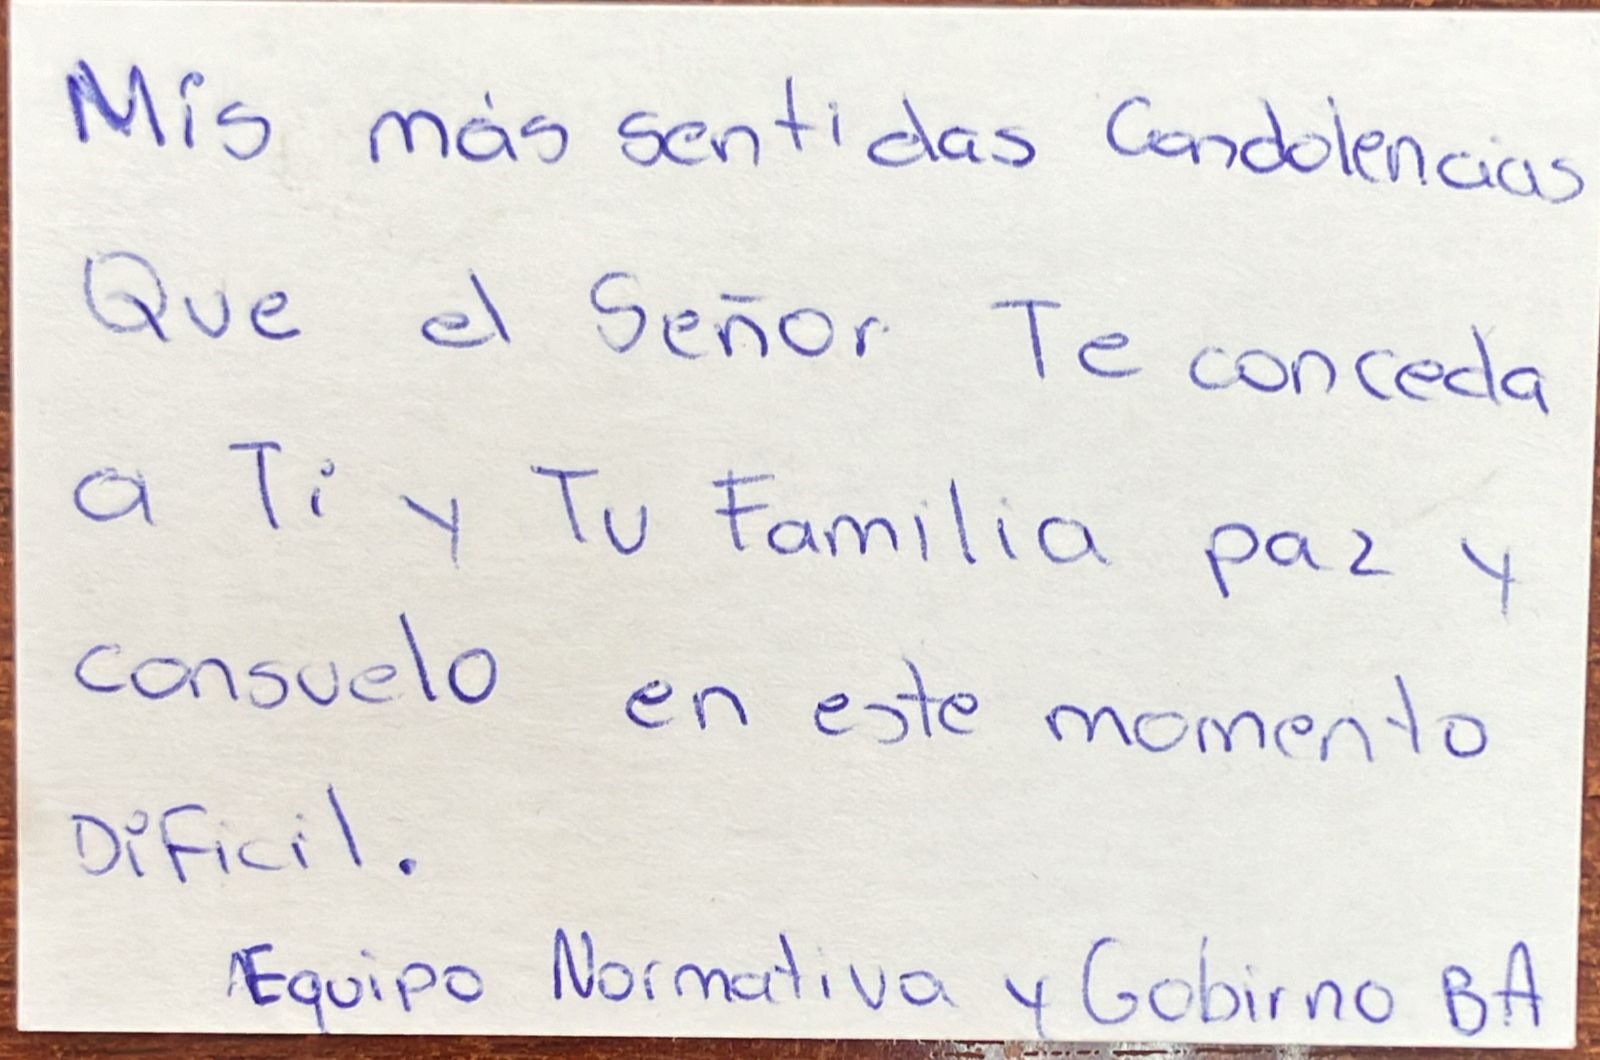 Mis más sentidas Condolencias
Que el Señor Te conceda
a Ti y Tu Familia paz y
consuelo en este momento
Dificil.
Equipo Normativa y Gobirno BA